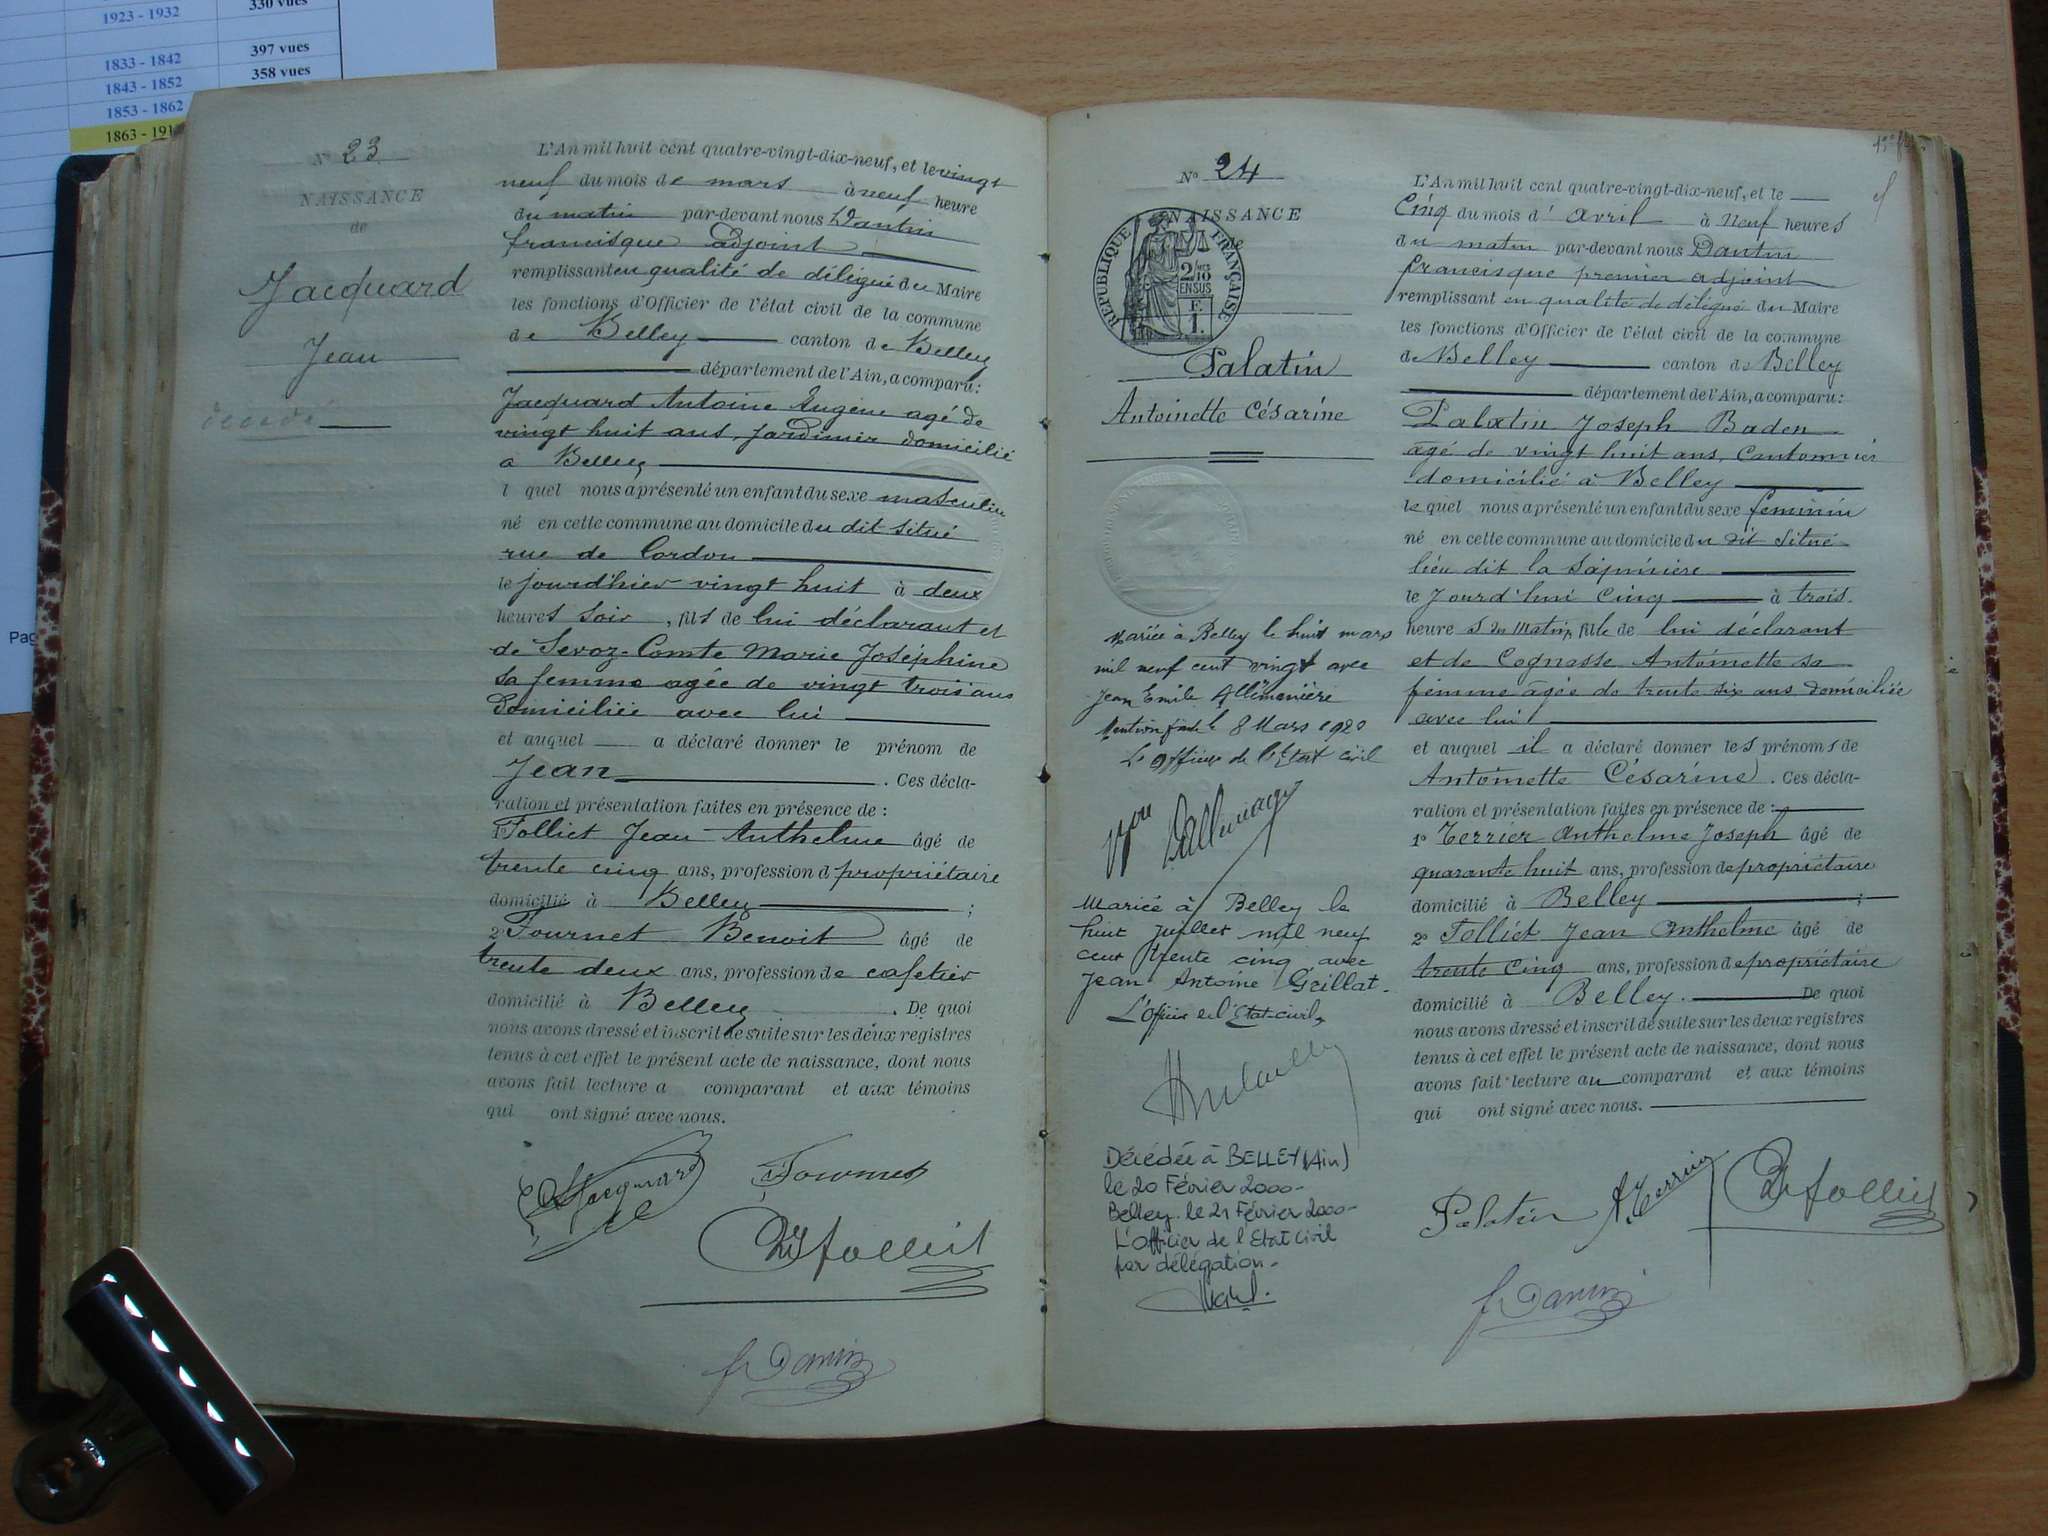 1923 - 1932
330 vues
1833 - 1842
397 vues
1843 - 1852
358 vues
1853 - 1862
1863 - 191
Pag
N° 23
NAISSANCE
de
Jacquard
Jean
L'An mil huit cent quatre-vingt-dix-neuf, et le vingt
neuf du mois de mars à neuf heure
du matin par-devant nous Dantin
francisque adjoint
remplissant en qualité de délégué du Maire
les fonctions d'Officier de l'état civil de la commune
de Belley canton de Belley
département de l'Ain, a comparu:
Jacquard Antoine Eugène agé de
vingt huit ans, Jardinier domicilié
a Belley
l quel nous a présenté un enfant du sexe masculin
né en cette commune au domicile du dit situé
rue de Cordon
le jourd'hier vingt huit à deux
heures soir, fils de lui déclarant et
de Sevoz-Comte Marie Joséphine
sa femme agée de vingt trois ans
Domiciliée avec lui
et auquel a déclaré donner le prénom de
Jean. Ces décla-
ration et présentation faites en présence de :
1° Folliet Jean Anthelme âgé de
trente cinq ans, profession d propriétaire
domicilié à Belley ;
2° Fournet Benoit âgé de
trente deux ans, profession de cafetier
domicilié à Belley. De quoi
nous avons dressé et inscrit de suite sur les deux registres
tenus à cet effet le présent acte de naissance, dont nous
avons fait lecture a comparant et aux témoins
qui ont signé avec nous.
Jacquard Fournet
folliet
f Dantin
N° 24
NAISSANCE
de
RÉPUBLIQUE FRANÇAISE
2/10
EN SUS
E
1.
Palatin
Antoinette Césarine
Mariée à Belley le huit mars
mil neuf cent vingt avec
Jean Emile
Mention faite le 8 Mars 1920
L'Officier de l'Etat civil
Mariée à Belley le
huit Juillet mil neuf
cent trente cinq avec
Jean Antoine Grillat.
L'Officier de l'Etat-civil,
Décédée à BELLEY (Ain)
le 20 Février 2000-
Belley. le 21 Février 2000-
L'Officier de l'Etat Civil
par délégation-
L'An mil huit cent quatre-vingt-dix-neuf, et le
Cinq du mois d' avril à neuf heures
du matin par-devant nous Dantin
francisque premier adjoint
remplissant en qualité de délégué du Maire
les fonctions d'Officier de l'état civil de la commune
de Belley canton de Belley
département de l'Ain, a comparu:
Palatin Joseph Baden
agé de vingt huit ans, Cantonnier
domicilié à Belley
le quel nous a présenté un enfant du sexe feminin
né en cette commune au domicile du dit situé
lieu dit la Sapinière
le jourd'hui Cinq à trois
heure s du Matin, fille de lui déclarant
et de Cognasse Antoinette sa
femme âgée de trente six ans domiciliée
avec lui
et auquel il a déclaré donner les prénoms de
Antoinette Césarine. Ces décla-
ration et présentation faites en présence de :
1° Terrier Anthelme Joseph âgé de
quarante huit ans, profession de propriétaire
domicilié à Belley ;
2° Folliet Jean Anthelme âgé de
trente Cinq ans, profession de propriétaire
domicilié à Belley. De quoi
nous avons dressé et inscrit de suite sur les deux registres
tenus à cet effet le présent acte de naissance, dont nous
avons fait lecture au comparant et aux témoins
qui ont signé avec nous.
Palatin A. Terrier folliet
f Dantin